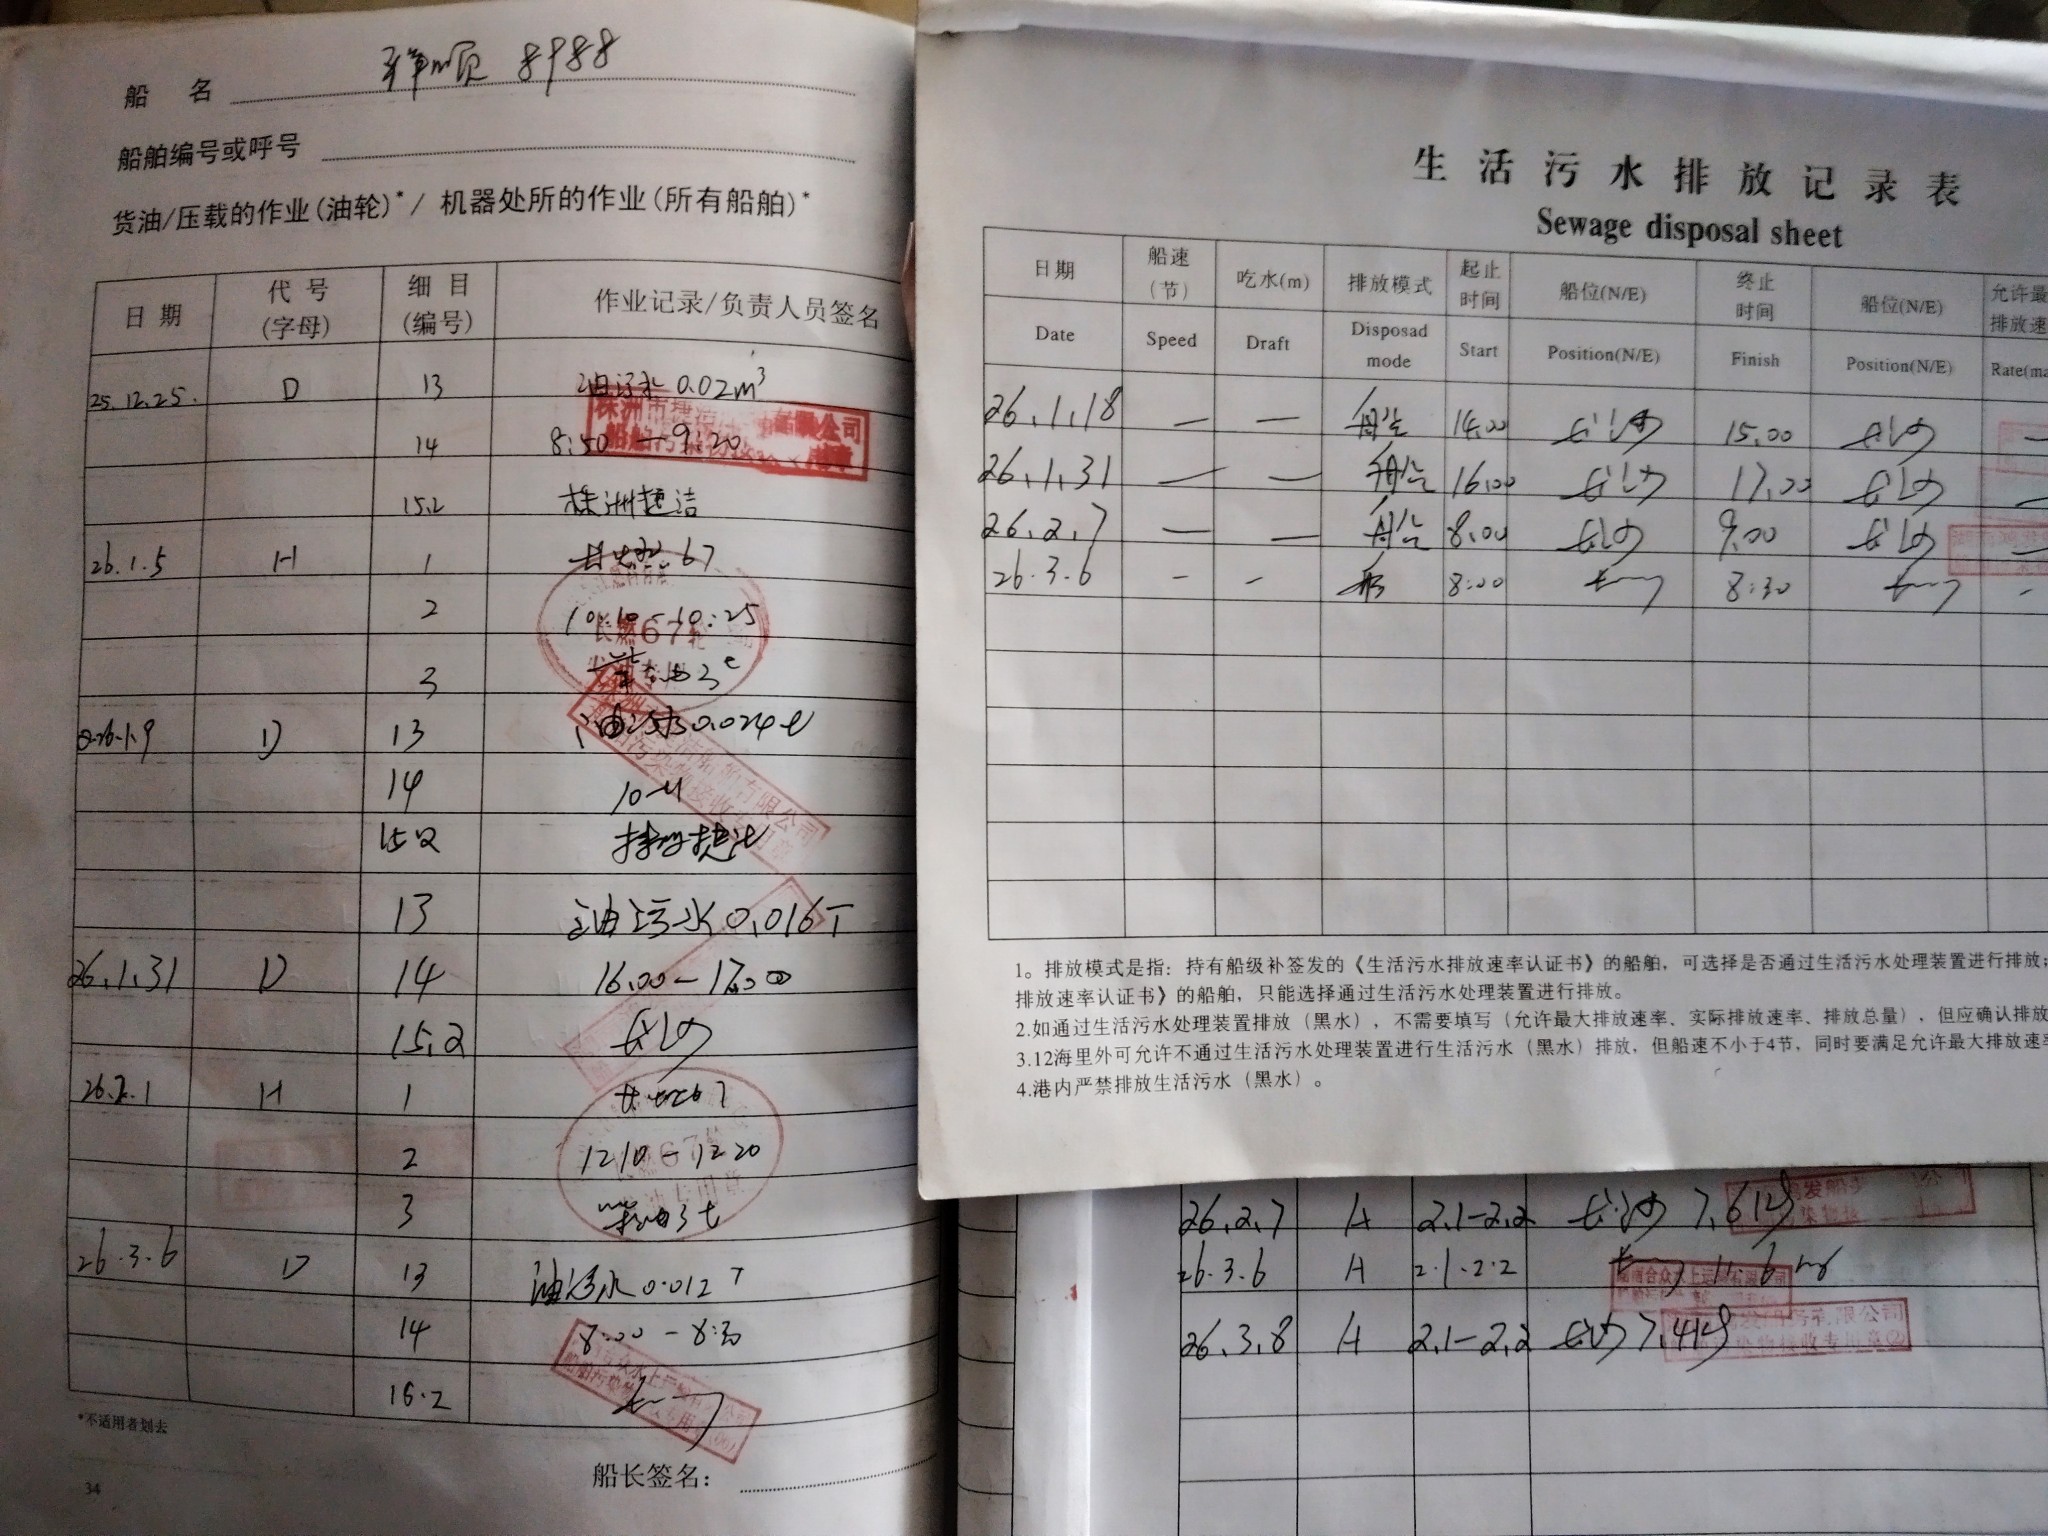 船 名 祥顺 8988
船舶编号或呼号
货油/压载的作业(油轮)*/ 机器处所的作业(所有船舶)*
日 期 代 号 (字母) 细 目 (编号) 作业记录/负责人员签名
25.12.25. D 13 油污水 0.02m³
14 8:50 — 9:20
15.2 株洲捷洁
26.1.5 H 1 67
2 10:10 - 10:25
3
26.1.9 D 13 油污水0.024t
14 10-11
15.2
13 油污水 0.016T
26.1.31 D 14 16.00 — 17.00
15.2 长沙
26.2.1 H 1
2 1210 - 1220
3 柴油3t
26.3.6 D 13 油污水 0.012T
14 8:00 - 8:30
15.2
*不适用者划去
船长签名:
34
生活污水排放记录表
Sewage disposal sheet
日期 船速(节) 吃水(m) 排放模式 起止时间 船位(N/E) 终止时间 船位(N/E) 允许最 排放速
Date Speed Draft Disposad mode Start Position(N/E) Finish Position(N/E) Rate(ma
26.1.18 — — 14.00 长沙 15.00 长沙 —
26.1.31 — — 16.00 长沙 17.00 长沙 —
26.2.7 — — 8.00 长沙 9.00 长沙 —
26.3.6 - - 8:00 8:30 -
1。排放模式是指: 持有船级补签发的《生活污水排放速率认证书》的船舶, 可选择是否通过生活污水处理装置进行排放;
排放速率认证书》的船舶, 只能选择通过生活污水处理装置进行排放。
2.如通过生活污水处理装置排放 (黑水), 不需要填写 (允许最大排放速率、实际排放速率、排放总量), 但应确认排放
3.12海里外可允许不通过生活污水处理装置进行生活污水 (黑水) 排放, 但船速不小于4节, 同时要满足允许最大排放速率
4.港内严禁排放生活污水 (黑水) 。
26.2.7 A 2.1-2.2 长沙
26.3.6 A 2.1.2.2
26.3.8 A 2.1-2.2 长沙